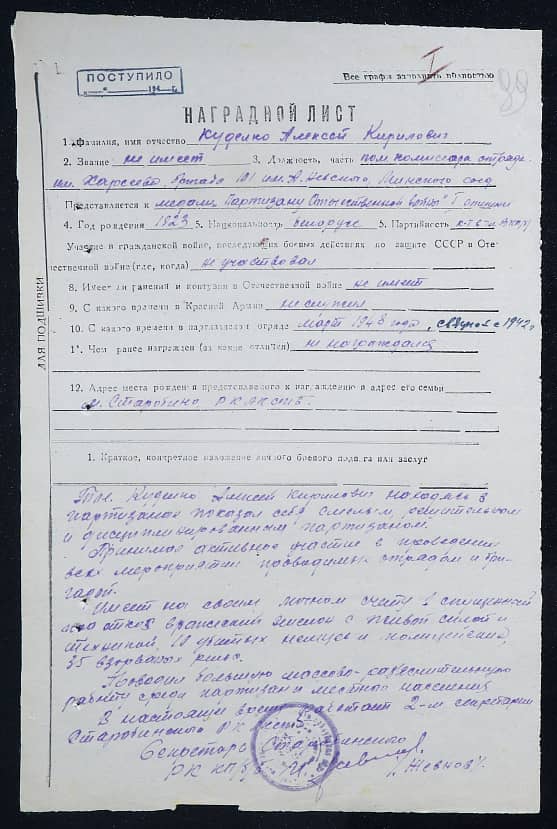 I
89
ПОСТУПИЛО
Все графы заполнять полностью
НАГРАДНОЙ ЛИСТ
1. Фамилия, имя отчество Куденко Алексей Кирилович
2. Звание не имеет 3. Должность, часть пом. комиссара отряда
бригада 101 им. А. Невского, Минского соед.
Представляется к медали "Партизану Отечественной войны" I степени
4. Год рождения 1923 5. Национальность белорус 5. Партийность к-т в чл. ВКП/б
Участие в гражданской войне, последующих боевых действиях по защите СССР в Оте-
чественной войне (где, когда) не участвовал
8. Имеет ли ранения и контузии в Отечественной войне не имеет
9. С какого времени в Красной Армии не служил
10. С какого времени в партизанском отряде март 1943 года, с 1942 г
1. Чем ранее награжден (за какие отличия) не награждался
12. Адрес места рождения представляемого к награждению и адрес его семьи
м. Старобино
1. Краткое, конкретное изложение личного боевого подвига или заслуг
Тов. Куденко Алексей Кирилович находясь в
партизанах показал себя смелым, решительным
и дисциплинированным партизаном.
Принимал активное участие в проведении
всех мероприятий проводимых отрядом и бри-
гадой.
Имеет на своем личном счету 1 спущенный
под откос вражеский эшелон с живой силой и
техникой, 10 убитых немцев и полицейских,
35 взорваных рельс.
Проводил большую массово-разъяснительную
работу среди партизан и местного населения
В настоящее время работает 2-м секретарем
Старобинского РК
Секретарь Старобинского
РК КП/б/Б
/Жевнов/.
ДЛЯ ПОДШИВКИ